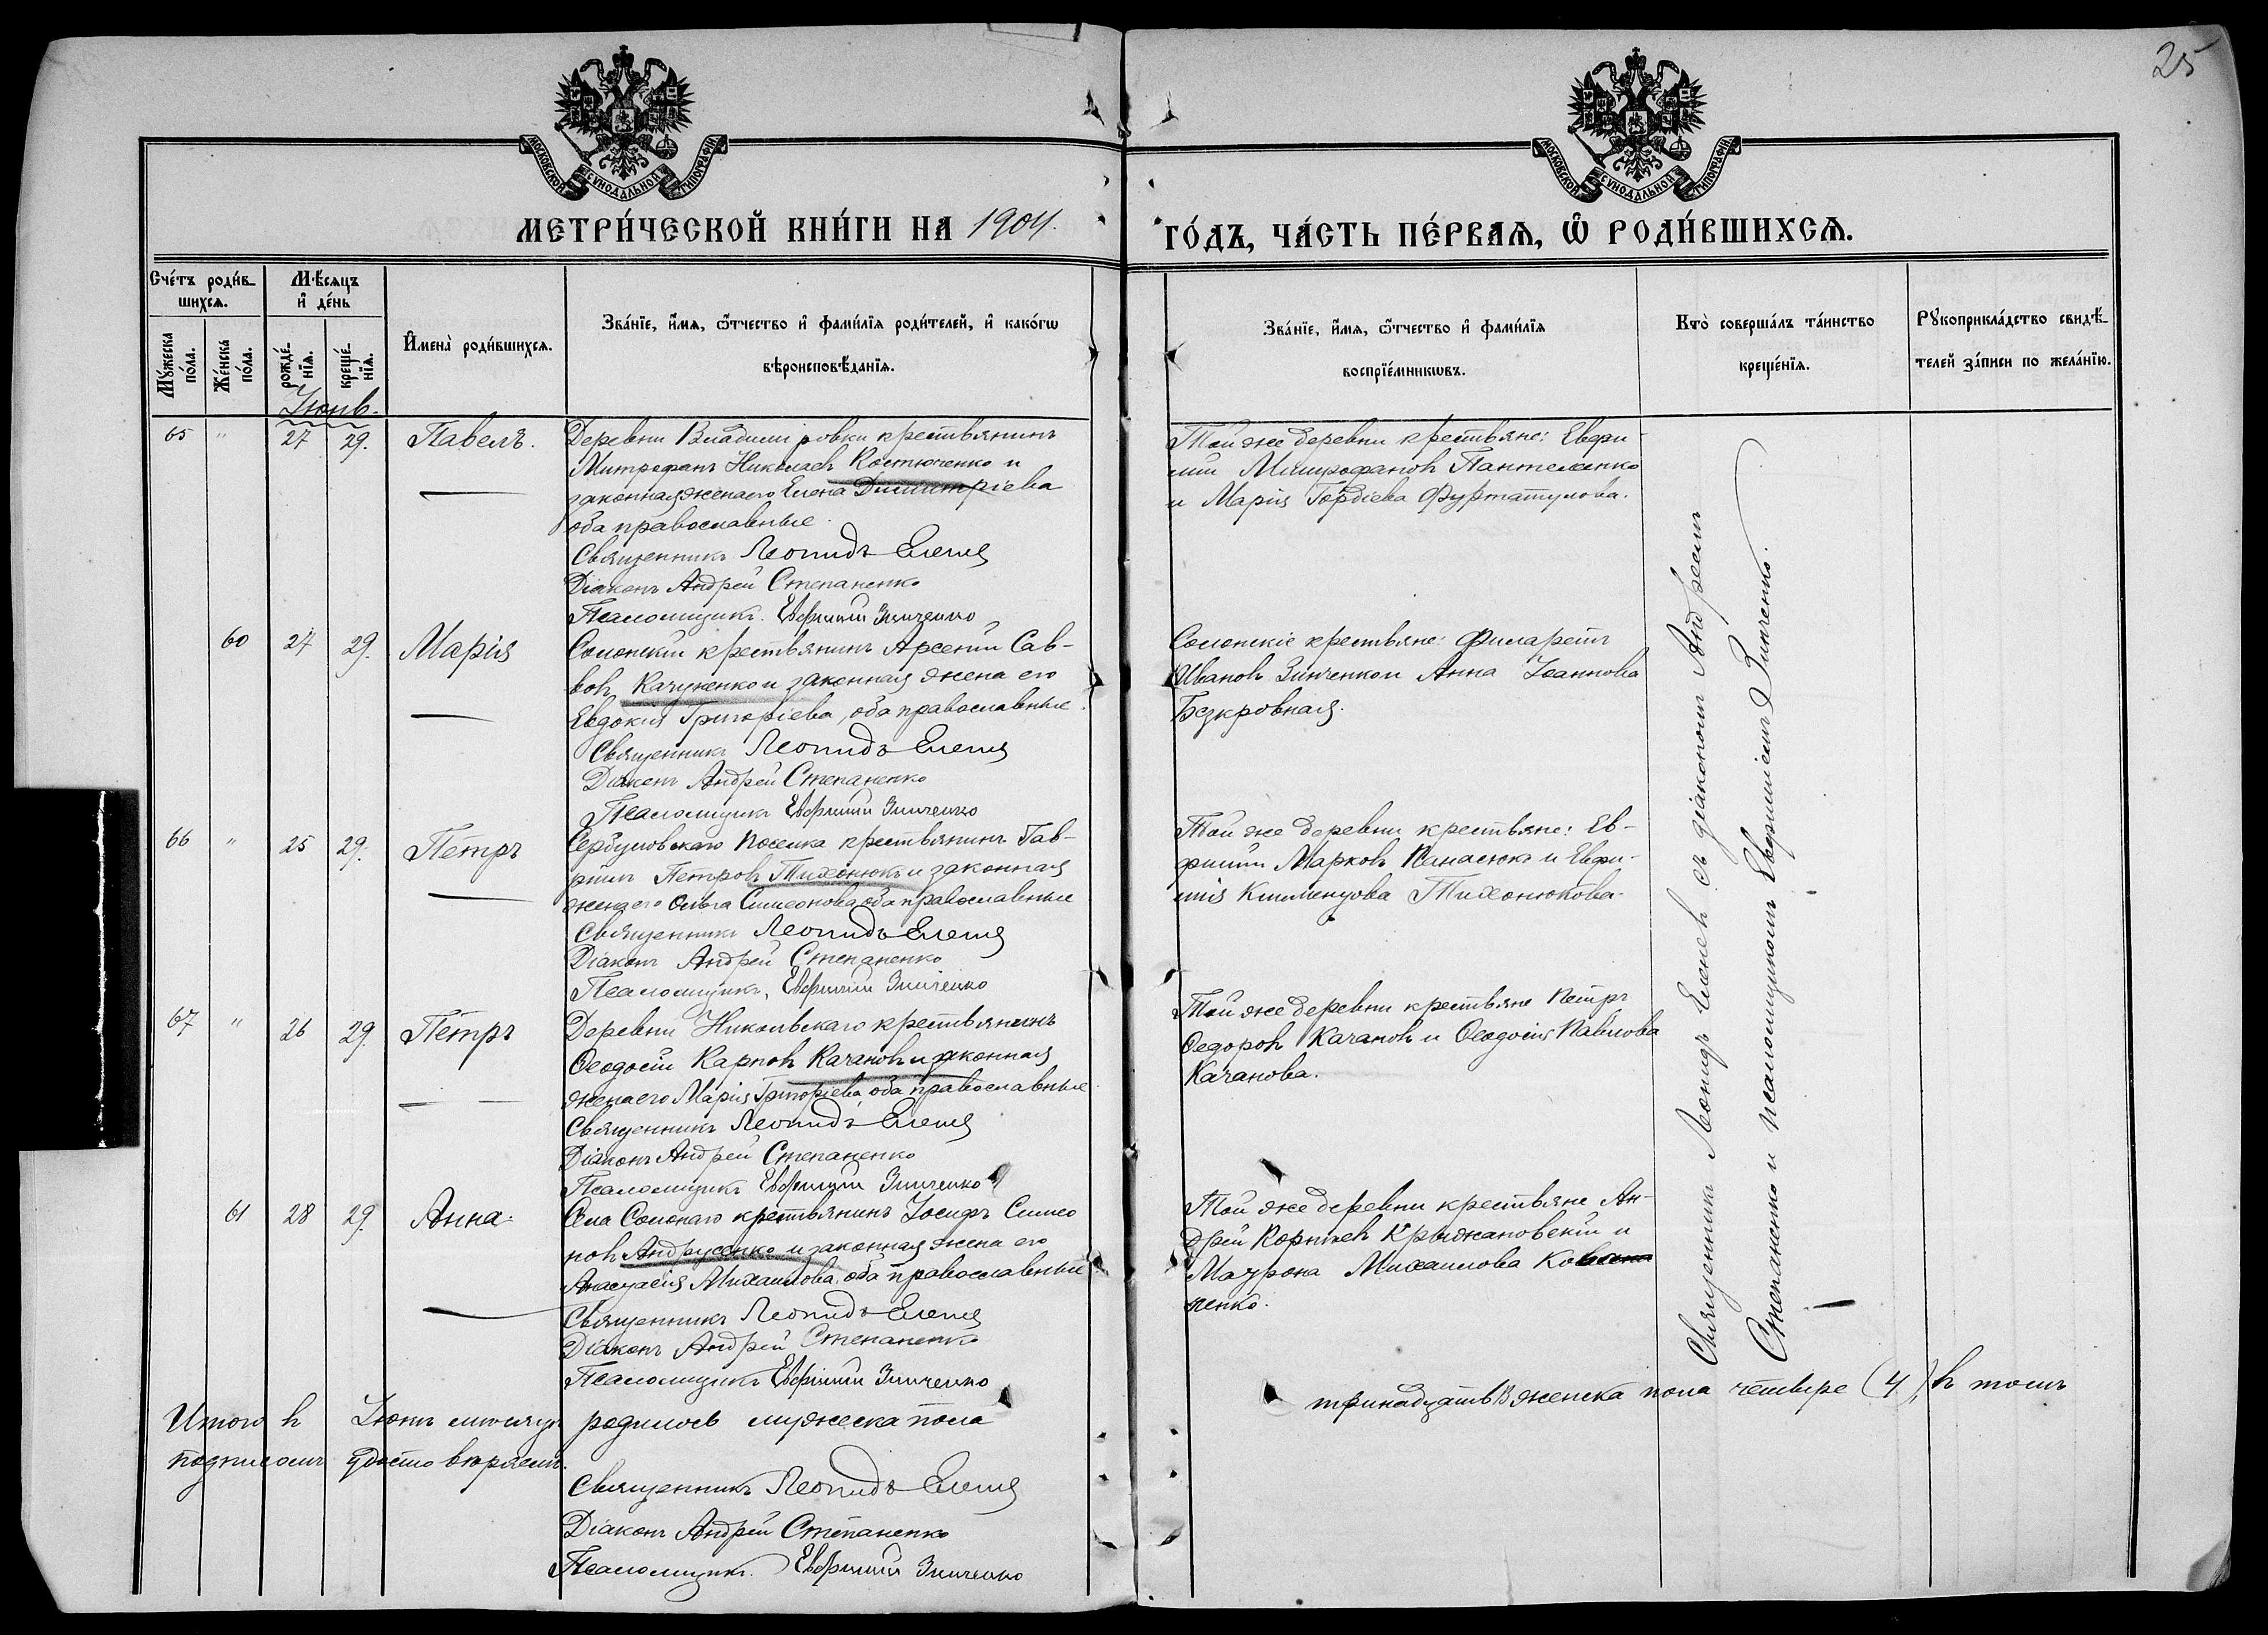 25
МОСКОВСКОЙ СѴНОДАЛЬНОЙ ТИПОГРАФІИ
МОСКОВСКОЙ СѴНОДАЛЬНОЙ ТИПОГРАФІИ
МЕТРИ́ЧЕСКОЙ КНИ́ГИ НА 1904.
ГО́ДЪ, ЧА́СТЬ ПЕ́РВАѦ, Ѡ҃ РОДИ́ВШИХСѦ.
Сче́тъ роди́в-
шихсѧ.
Мꙋ́жеска по́ла.
Же́нска по́ла.
Мѣ́сѧцъ
и҆ де́нь
рожде́-нїѧ.
креще́-нїѧ.
И҆мена̀ роди́вшихсѧ.
Зва́нїе, и҆́мѧ, ѻ҆́тчество и҆ фами́лїѧ роди́телей, и҆ како́гѡ
вѣроисповѣ́данїѧ.
Зва́нїе, и҆́мѧ, ѻ҆́тчество и҆ фами́лїѧ
воспрїе́мникѡвъ.
Кто̀ соверша́лъ та́инство
креще́нїѧ.
Рꙋкоприкла́дство свидѣ́-
телей за́писи по жела́нїю.
Іюнь.
65 " 27 29. Павелъ.
Деревни Владимировки крестьянинъ
Митрофанъ Николаевъ Костюченко и
законная жена его Елена Димитріева
оба православные.
Священникъ Леонидъ
Діаконъ Андрей Степаненко
Псаломщикъ Евфимій Зинченко
Той же деревни крестьяне: Евфи-
мій Митрофановъ Пантеленко
и Марія Гордіева
60 27 29. Марія
Солонскій крестьянинъ Арсеній Сав-
вовъ и законная жена его
Евдокія Григоріева, оба православные.
Священникъ Леонидъ
Діаконъ Андрей Степаненко
Псаломщикъ Евфимій Зинченко
Солонскіе крестьяне: Филаретъ
Ивановъ Зинченко и Анна Іоаннова
Безкровная.
66 " 25 29. Петръ
Сербуловскаго поселка крестьянинъ Гав-
ріилъ Петровъ Тихонюкъ и законная
жена его Ольга Симеонова, оба православные
Священникъ Леонидъ
Діаконъ Андрей Степаненко
Псаломщикъ, Евфимій Зинченко
Той же деревни крестьяне: Ев-
фимій Марковъ Панасюкъ и Евфи-
мія Климентова Тихонюкова
67 " 26 29. Петръ
Деревни Никольскаго крестьянинъ
Ѳеодосій Карповъ Качановъ и законная
жена его Марія Григоріева, оба православные
Священникъ Леонидъ
Діаконъ Андрей Степаненко
Псаломщикъ Евфимій Зинченко
Той же деревни крестьяне Петръ
Ѳедоровъ Качановъ и Ѳеодосія Павлова
Качанова.
61 28 29. Анна.
Села Солонаго крестьянинъ Іосифъ Симео
новъ Андрусенко и законная жена его
Анастасія Михаилова, оба православные
Священникъ Леонидъ
Діаконъ Андрей Степаненко
Псаломщикъ Евфимій Зинченко
Той же деревни крестьяне Ан-
дрей Корнѣевъ Крыжановскій и
Матрона Михаилова
ненко.
Священникъ Леонидъ съ діакономъ Андреемъ
Степаненко и псаломщикомъ Евфиміемъ Зинченко.
Итого въ Іюнѣ мѣсяцѣ родилось мужеска пола
тринадцать, женска пола четыре (4), въ томъ
подписомъ удостовѣряемъ.
Священникъ Леонидъ
Діаконъ Андрей Степаненко
Псаломщикъ Евфимій Зинченко